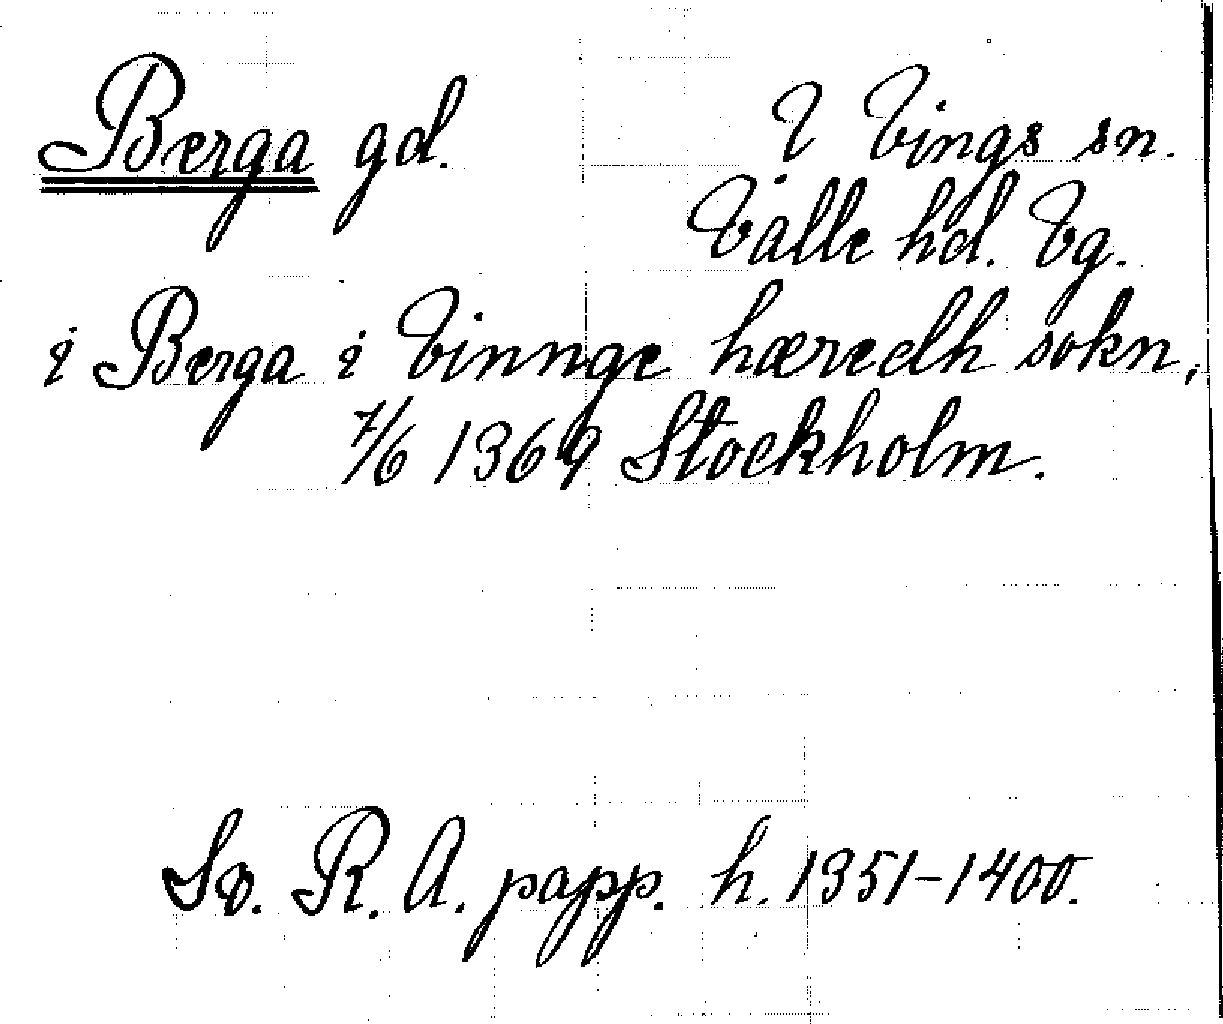 Berga gd. ? Vings sn.
Valle hd. Vg.
i Berga i Vinnge hæredh sokn,
7/6 1369 Stockholm.
Sv. R. A. papp. h. 1351-1400.